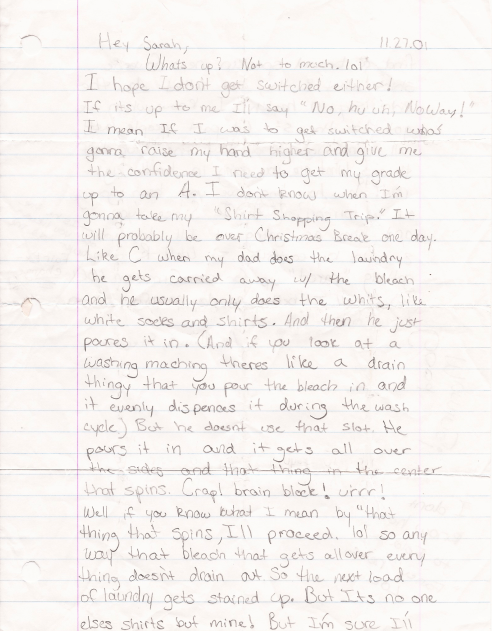 Hey Sarah, 11.27.01
Whats up? Not to much. lol
I hope I dont get switched either!
If its up to me I'll say "No, hu uh, No Way!"
I mean If I was to get switched who's
gonna raise my hand higher and give me
the confidence I need to get my grade
up to an A. I dont know when I'm
gonna take my "Shirt Shopping Trip." It
will probably be over Christmas Break one day.
Like C when my dad does the laundry
he gets carried away w/ the bleach
and he usually only does the whits, like
white socks and shirts. And then he just
poures it in. (And if you look at a
washing maching theres like a drain
thingy that you pour the bleach in and
it evenly dispences it during the wash
cycle) But he doesnt use that slot. He
pours it in and it gets all over
the sides and that thing in the center
that spins. Crap! brain block! urrr!
Well if you know what I mean by "that
thing that spins, I'll proceed. lol so any
way that bleach that gets allover every
thing doesn't drain out So the next load
of laundry gets stained up. But Its no one
elses shirts but mine! But I'm sure I'll